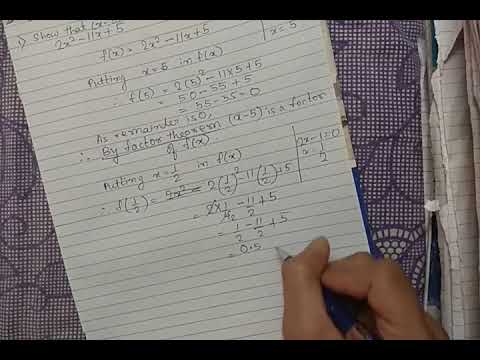 1) Show that (x-5)
2x²-11x+5
f(x) = 2x²-11x+5
x=5
Putting x=5 in f(x)
∴ f(5) = 2(5)²-11×5+5
= 50-55+5
= 55-55=0
As remainder is 0,
∴ By factor theorem (x-5) is a factor
of f(x)
2x-1=0
x=1/2
Putting x=1/2 in f(x)
∴ f(1/2) = 2(1/2)²-11(1/2)+5
= 2×1/4 - 11/2 + 5
= 1/2 - 11/2 + 5
= 0.5